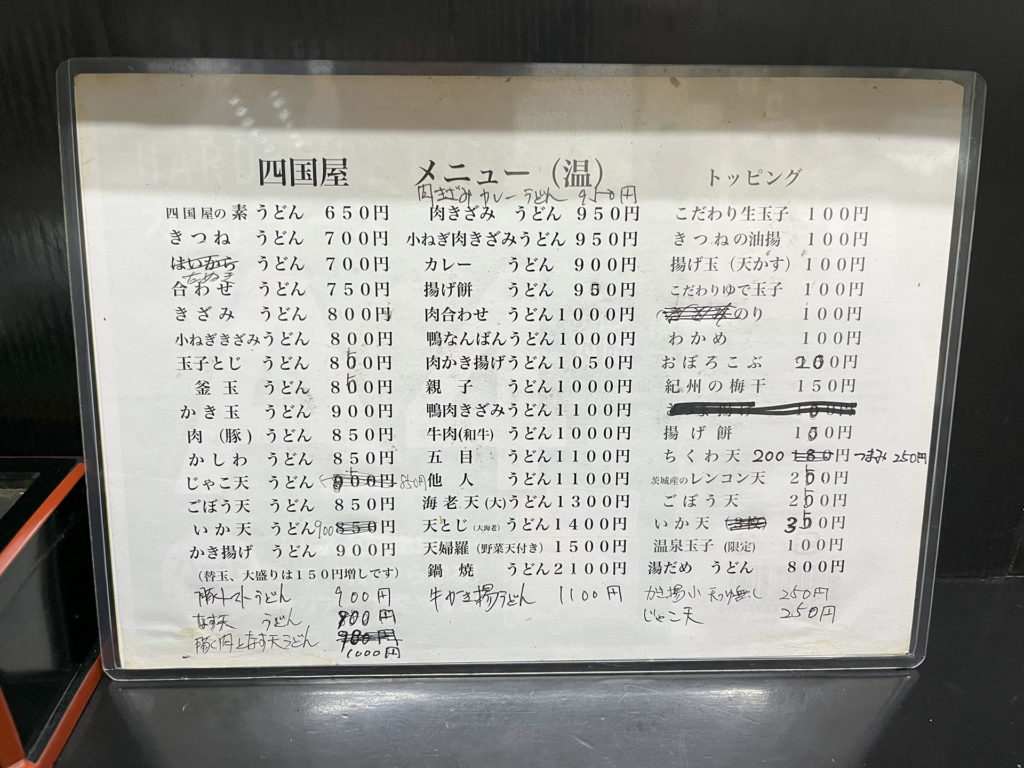 四国屋 メニュー（温）
肉きざみカレーうどん 950円
四国屋の素うどん 650円
きつね うどん 700円
はいからち
たぬき うどん 700円
合わせ うどん 750円
きざみ うどん 800円
小ねぎきざみうどん 800円
玉子とじ うどん 850円
釜玉 うどん 850円
かき玉 うどん 900円
肉（豚）うどん 850円
かしわ うどん 850円
じゃこ天 うどん 900円 850円
ごぼう天 うどん 850円
いか天 うどん 900 850円
かき揚げ うどん 900円
（替玉、大盛りは１５０円増しです）
豚トマトうどん 900円
なす天 うどん 800円
豚肉となす天うどん 900円
1000円
肉きざみ うどん 950円
小ねぎ肉きざみうどん 950円
カレー うどん 900円
揚げ餅 うどん 950円
肉合わせ うどん 1000円
鴨なんばんうどん 1000円
肉かき揚げうどん 1050円
親子 うどん 1000円
鴨肉きざみうどん 1100円
牛肉(和牛) うどん 1000円
五目 うどん 1100円
他人 うどん 1100円
海老天(大)うどん 1300円
天とじ（大海老）うどん 1400円
天婦羅（野菜天付き）1500円
鍋焼 うどん 2100円
牛かき揚うどん 1100円
トッピング
こだわり生玉子 100円
きつねの油揚 100円
揚げ玉（天かす）100円
こだわりゆで玉子 100円
のり 100円
わかめ 100円
おぼろこぶ 200円
紀州の梅干 150円
揚げ餅 150円
ちくわ天 200 180円 つまみ 250円
茨城産のレンコン天 250円
ごぼう天 250円
いか天 350円
温泉玉子（限定）100円
湯だめ うどん 800円
かき揚小 天つゆ無し 250円
じゃこ天 250円